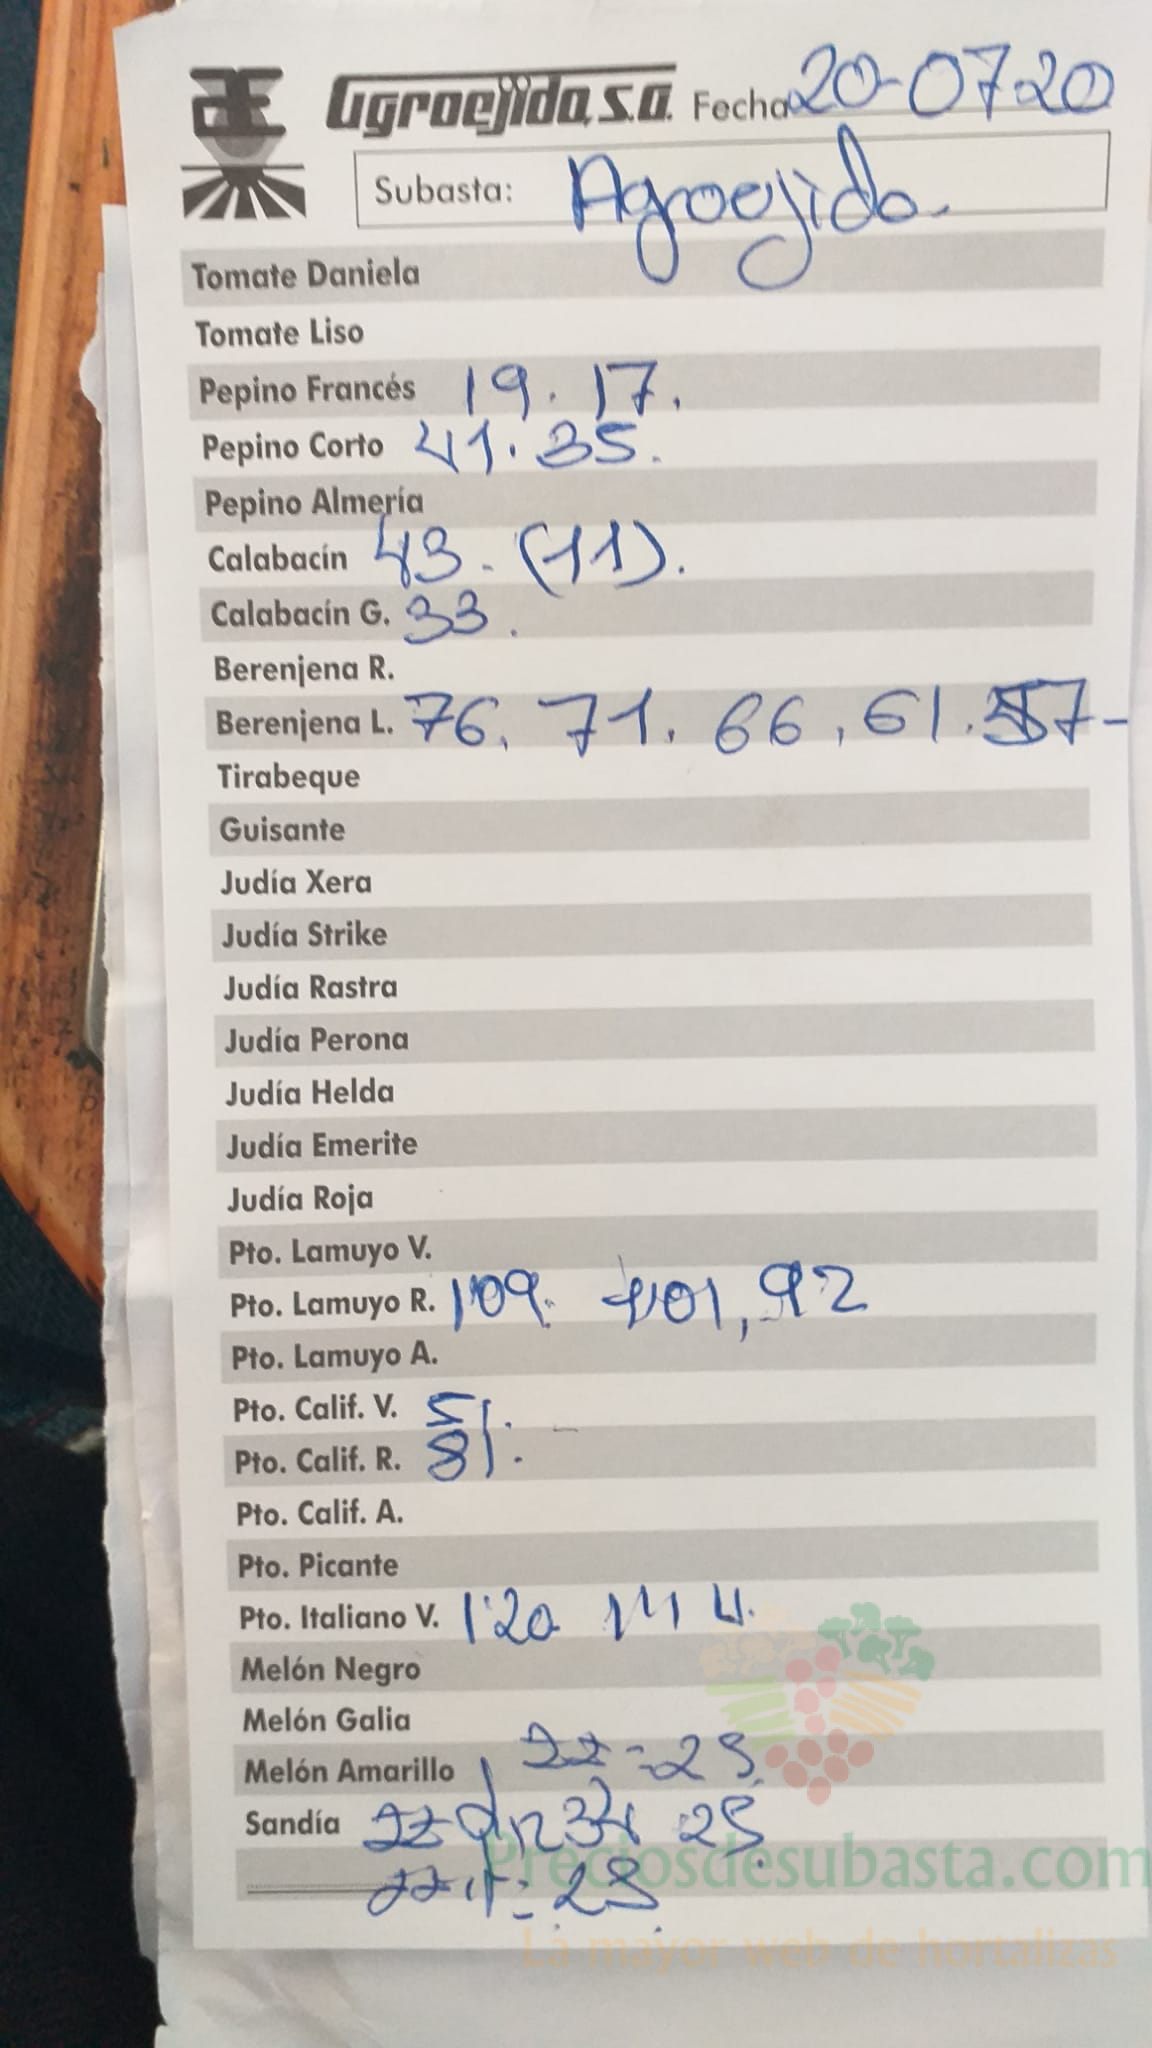 Agroejido, S.A. Fecha 20-07-20
Subasta: Agroejido
Tomate Daniela
Tomate Liso
Pepino Francés 19. 17.
Pepino Corto 41. 35.
Pepino Almería
Calabacín 43. (11).
Calabacín G. 33.
Berenjena R.
Berenjena L. 76. 71. 66, 61. 57-
Tirabeque
Guisante
Judía Xera
Judía Strike
Judía Rastra
Judía Perona
Judía Helda
Judía Emerite
Judía Roja
Pto. Lamuyo V.
Pto. Lamuyo R. 1'09. 1'01, 92
Pto. Lamuyo A.
Pto. Calif. V. 51. -
Pto. Calif. R. 81.
Pto. Calif. A.
Pto. Picante
Pto. Italiano V. 1'20
Melón Negro
Melón Galia
Melón Amarillo
Sandía
Preciosdesubasta.com
La mayor web de hortalizas